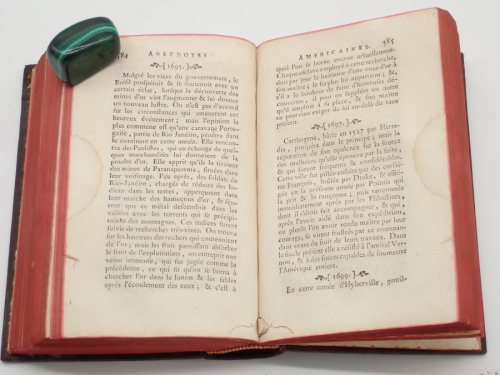 584 ANECDOTES
[1695.]
Malgré les vices du gouvernement, le
Brésil prospéroit & se soutenoit avec un
certain éclat, lorsque la découverte des
mines d'or vint l'augmenter & lui donner
un nouveau lustre. On n'est pas d'accord
sur les circonstances qui amenerent cet
heureux événement ; mais l'opinion la
plus commune est qu'une caravane Portu-
gaise, partie de Rio-Janéiro, pénétra dans
le continent cette année. Elle rencon-
tra des Paulistes, qui en échange de quel-
ques marchandises lui donnerent de la
poudre d'or. Elle apprit qu'ils la tiroient
des mines de Paranapanema, situées dans
leur voisinage. Peu après, des soldats de
Rio-Janéiro, chargés de réduire des In-
diens dans les terres, apperçurent dans
leur marche des hameçons d'or, & sçu-
rent que ce métal descendoit dans les
vallées avec les torrens qui se précipi-
toient des montagnes. Ces indices furent
suivis de recherches très-vives. On trouva
sur les hauteurs des rochers qui contenoient
de l'or ; mais les frais pouvoient absorber
le fruit de l'exploitation, on entreprit une
veine immense, qui fut jugée comme la
précédence, ce qui fit qu'on se borna à
chercher l'or dans le limon & les sables
après l'écoulement des eaux ; & c'est à
AMERICAINES. 585
quoi l'on se borne encore actuellement.
Chaque esclave employé à cette recherche,
doit par jour le huitieme d'une once d'or à
son maître ; le surplus lui appartient ; &,
s'il a le bonheur de faire d'heureuses dé-
couvertes, il peut en suppléer un autre
qu'il emploie à sa place, & son maître
ne peut rien exiger de lui au-delà du taux
prescrit.
[1697.]
Carthagene, bâtie en 1527 par Here-
dia, prospéra dans le principe ; mais la
réputation de son opulence fut la source
des malheurs qu'elle éprouva par la suite,
& qui furent fréquens & considérables.
Cette ville fut pillée ensuite par des corsai-
res François, brûlée par Drake, & assié-
gée en la présente année par Pointis qui
la prit & la rançonna ; puis rançonnée
immédiatement après par les Flibustiers,
dont il s'étoit fait accompagner, & qui,
après l'avoir aidé dans son expédition,
ou plutôt l'en avoir rendu maître par leur
courage, se virent frustrés par ce comman-
dant avare du fruit de leur travaux. Dans
le siecle présent elle a résisté à l'amiral Ver-
non, & à des forces capables de soumettre
l'Amérique entiere.
[1699.]
En cette année d'Hyberville, gentil-